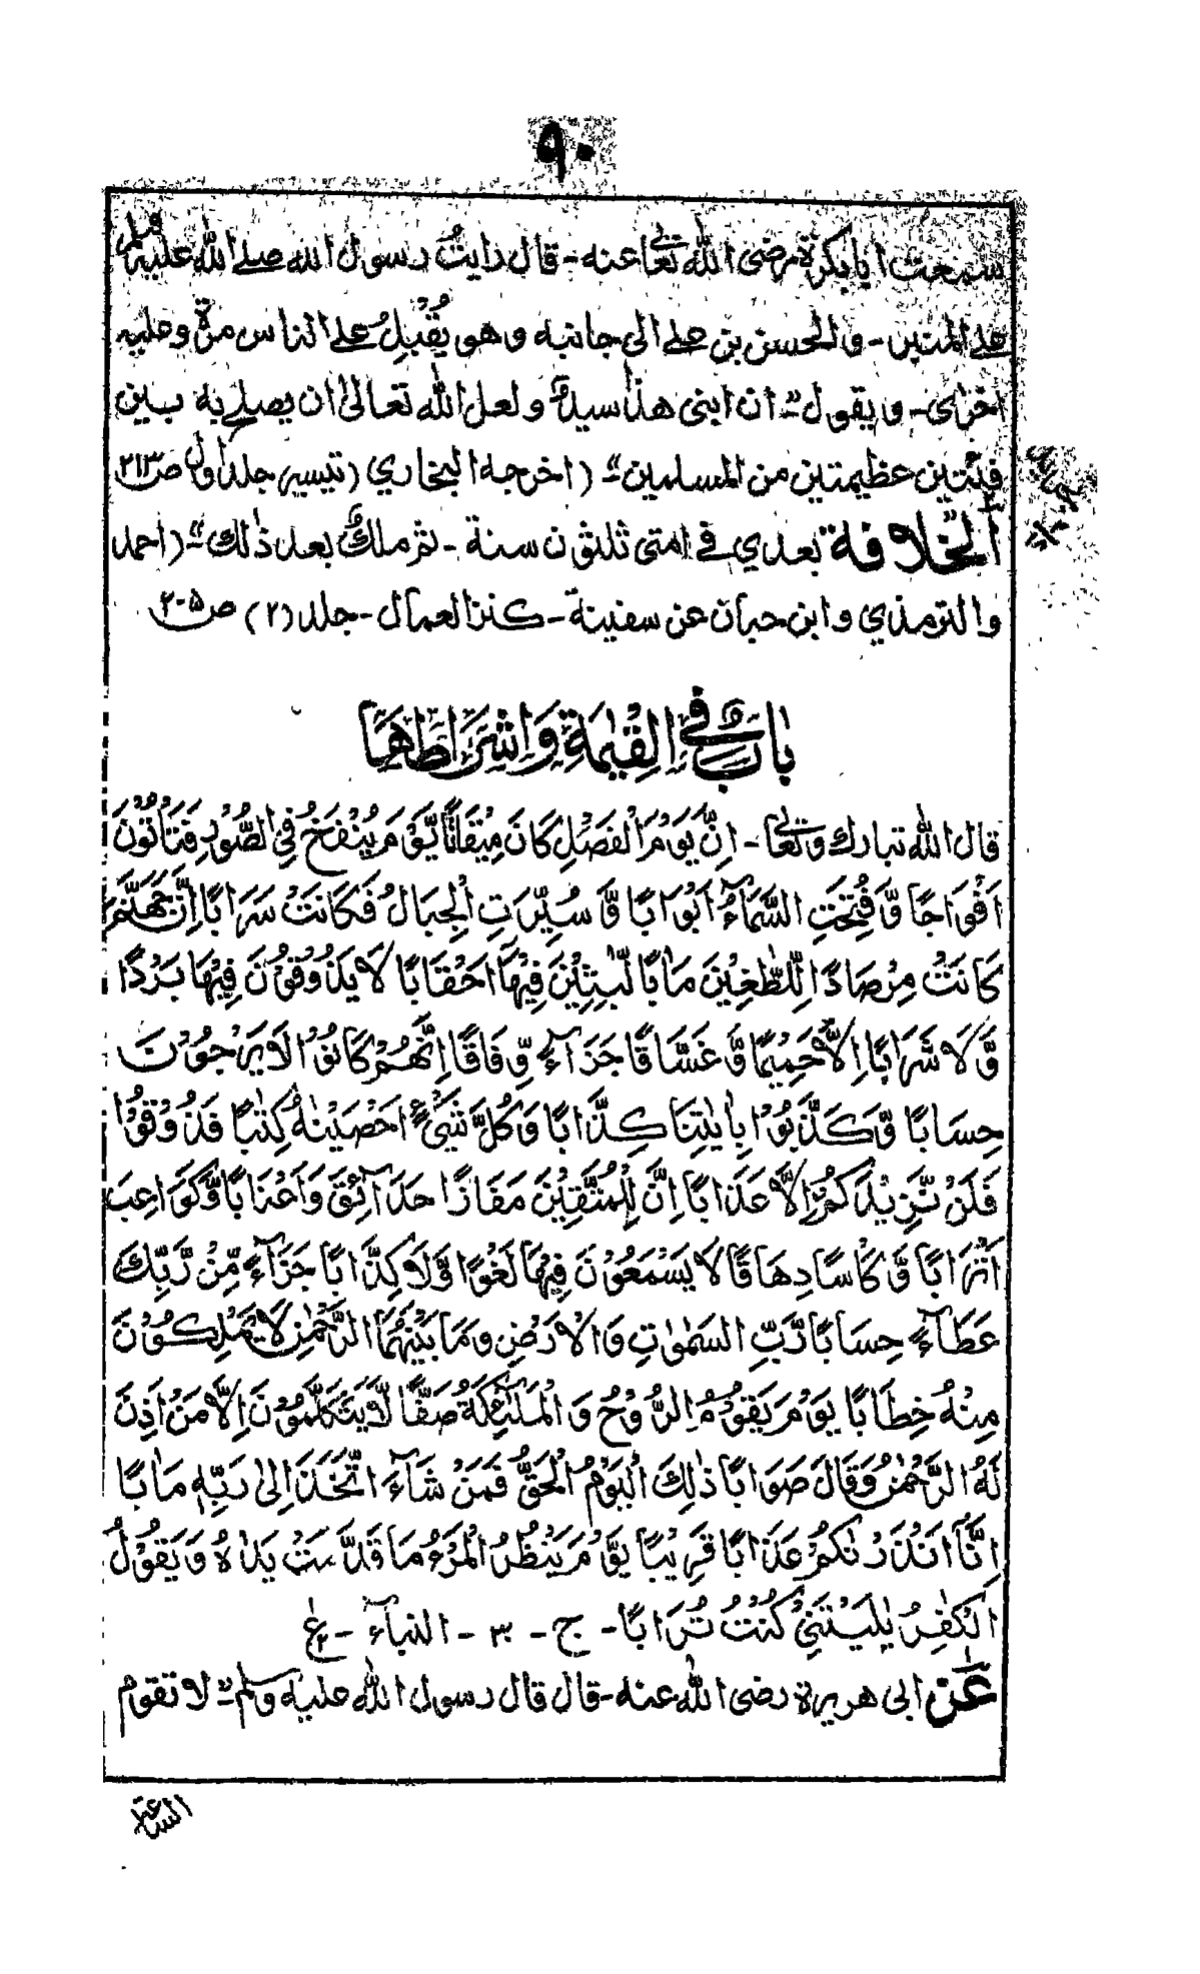 ۹۰
سمعت ابا بكرة رضى الله تعالى عنه - قال رايت رسول الله صلے الله عليه وسلم
علے المنبر - والحسن بن علے الى جانبه وهو يُقْبِلُ علے الناس مرة وعليه
اخرٰى - ويقول " ان ابنى هذا سيدٌ ولعل الله تعالىٰ ان يصلح به بين
فئتين عظيمتين من المسلمين " (اخرجه البخاري (تيسير جلد اول ص ۲۱۳
اَلخلافة بعدي فے امتى ثلثون سنة - ثم ملكٌ بعد ذٰلك " (احمد
والترمذي وابن حبان عن سفينة - كنز العمال - جلد (۲) ص ۲۰۵
بَابٌ فِي الْقِيٰمَةِ وَاَشْرَاطِهَا
قال الله تبارك وتعالى - اِنَّ يَوْمَ الْفَصْلِ كَانَ مِيْقَاتًا يَّوْمَ يُنْفَخُ فِي الصُّوْرِ فَتَاْتُوْنَ
اَفْوَاجًا وَّفُتِحَتِ السَّمَآءُ اَبْوَابًا وَّسُيِّرَتِ الْجِبَالُ فَكَانَتْ سَرَابًا اِنَّ جَهَنَّمَ
كَانَتْ مِرْصَادًا لِّلطّٰغِيْنَ مَاٰبًا لّٰبِثِيْنَ فِيْهَا اَحْقَابًا لَا يَذُوْقُوْنَ فِيْهَا بَرْدًا
وَّلَا شَرَابًا اِلَّا حَمِيْمًا وَّغَسَّاقًا جَزَآءً وِّفَاقًا اِنَّهُمْ كَانُوْا لَا يَرْجُوْنَ
حِسَابًا وَّكَذَّبُوْا بِاٰيٰتِنَا كِذَّابًا وَكُلَّ شَيْءٍ اَحْصَيْنٰهُ كِتٰبًا فَذُوْقُوْا
فَلَنْ نَّزِيْدَكُمْ اِلَّا عَذَابًا اِنَّ لِلْمُتَّقِيْنَ مَفَازًا حَدَآئِقَ وَاَعْنَابًا وَّكَوَاعِبَ
اَتْرَابًا وَّكَاْسًا دِهَاقًا لَا يَسْمَعُوْنَ فِيْهَا لَغْوًا وَّلَا كِذَّابًا جَزَآءً مِّنْ رَّبِّكَ
عَطَآءً حِسَابًا رَّبِّ السَّمٰوٰتِ وَالْاَرْضِ وَمَا بَيْنَهُمَا الرَّحْمٰنِ لَا يَمْلِكُوْنَ
مِنْهُ خِطَابًا يَوْمَ يَقُوْمُ الرُّوْحُ وَالْمَلٰٓئِكَةُ صَفًّا لَّا يَتَكَلَّمُوْنَ اِلَّا مَنْ اَذِنَ
لَهُ الرَّحْمٰنُ وَقَالَ صَوَابًا ذٰلِكَ الْيَوْمُ الْحَقُّ فَمَنْ شَآءَ اتَّخَذَ اِلٰى رَبِّهٖ مَاٰبًا
اِنَّا اَنْذَرْنٰكُمْ عَذَابًا قَرِيْبًا يَّوْمَ يَنْظُرُ الْمَرْءُ مَا قَدَّمَتْ يَدٰهُ وَيَقُوْلُ
الْكٰفِرُ يٰلَيْتَنِيْ كُنْتُ تُرَابًا - ج - ۳۰ - النبآء - ع
عَن ابى هريرة رضى الله عنه - قال قال رسول الله عليه وسلم " لا تقوم
الساعة